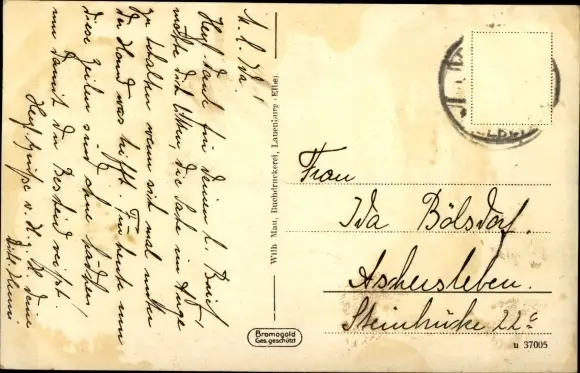 M. l. Ida!
Herzl. Dank für Deinen l. Brief,
möchte Dich bitten, die Sache im Auge
zu behalten wenn sich mal unter
der Hand was trifft. Für heute nun
diese Zeilen sind ohne
nun damit Du Bescheid weißt!
Herzl. Grüße v. H. Deine
Wilh Mau, Buchdruckerei, Lauenburg (Elbe).
Frau
Ida Bölsdorf.
Aschersleben.
Steinbrücke 22c
Bromogold
Ges. geschützt
u 37005